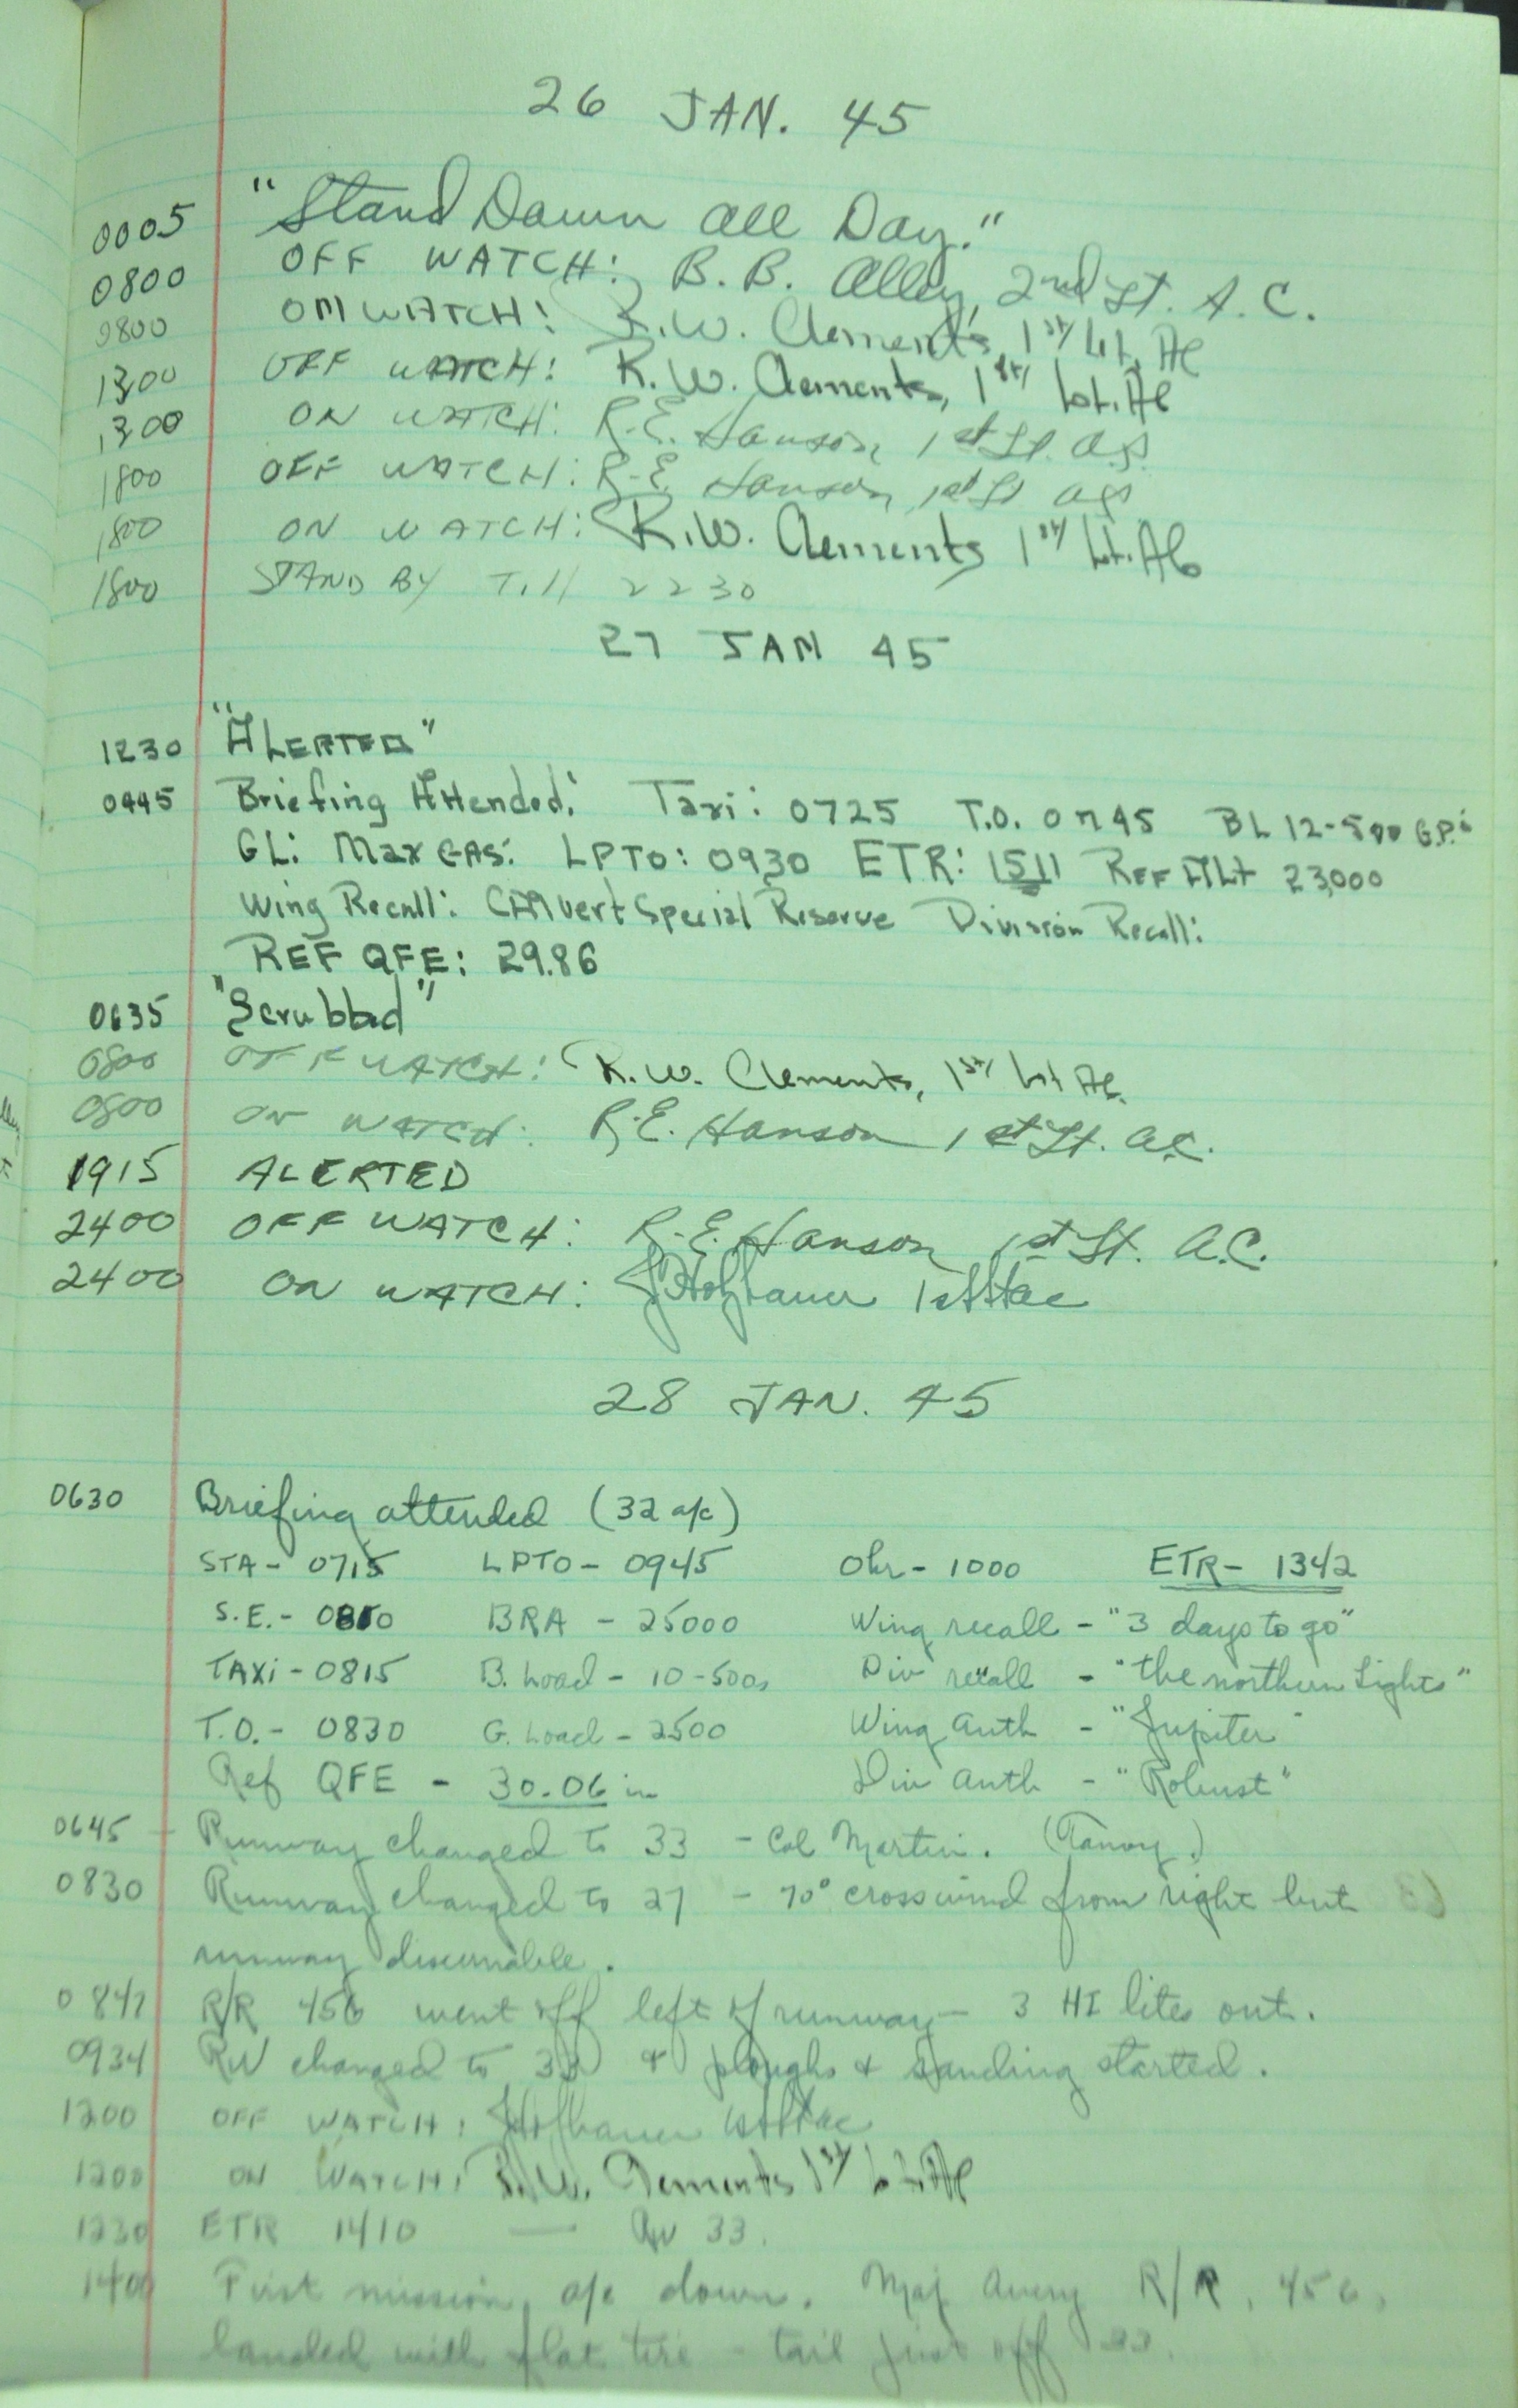 26 JAN. 45
0005 "Stand Down all Day."
0800 OFF WATCH: B. B. Alley, 2nd Lt. A. C.
0800 ON WATCH: R.W. Clements, 1st Lt. AC
1300 OFF WATCH: R.W. Clements, 1st Lt. AC
1300 ON WATCH: R.E. Hanson, 1st Lt. A.C.
1800 OFF WATCH: R.E. Hanson, 1st Lt AC
1800 ON WATCH: R.W. Clements 1st Lt. AC
1800 STAND BY Till 2230
27 JAN 45
1230 "ALERTED"
0445 Briefing Attended: Taxi: 0725 T.O. 0745 BL 12-500 G.P.
GL: Max GAS: LPTO: 0930 ETR: 1511 REF Alt 23,000
Wing Recall: CAlvert Special Reserve Division Recall:
REF QFE: 29.86
0635 "Scrubbed"
0800 OFF WATCH: R.W. Clements, 1st Lt AC.
0800 ON WATCH: R.E. Hanson 1st Lt. A.C.
1915 ALERTED
2400 OFF WATCH: R.E. Hanson 1st Lt. A.C.
2400 ON WATCH: 1st Lt ac
28 JAN. 45
0630 Briefing attended (32 a/c)
STA- 0715 LPTO- 0945 Ohr- 1000 ETR- 1342
S.E.- 0810 BRA - 25000 Wing recall - "3 days to go"
TAXi-0815 B. Load - 10-500s Div recall - "the northern Lights"
T.O.- 0830 G. Load - 2500 Wing Auth - "Jupiter"
Ref QFE - 30.06 in Div Auth - "Robust"
0645 - Runway changed to 33 - Col Martin. (Tanoy.)
0830 Runway changed to 27 - 70° crosswind from right but
runway discernable.
0847 R/R 456 went off left of runway - 3 HI lites out.
0934 RW changed to 33 & ploughs & sanding started.
1200 OFF WATCH: 1st Lt ac
1200 ON WATCH: R.W. Clements 1st Lt. AC
1230 ETR 1410 — RW 33.
1400 First mission a/c down. Maj Avery R/R, 456,
landed with flat tire - tail just off 33.